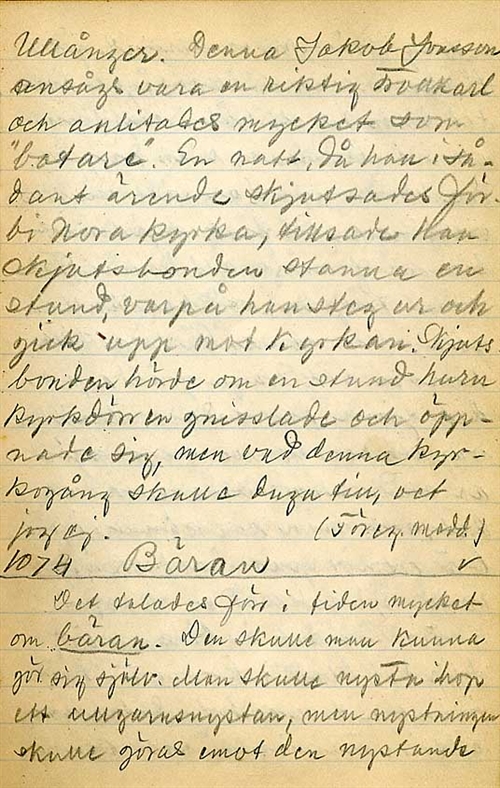 Ullånger. Denna Jakob Jonsson
ansågs vara en riktig trollkarl
och anlitades mycket som
"botare". En natt, då han i så-
dant ärende skjutsades för-
bi Nora kyrka, tillsade han
skjutsbonden stanna en
stund, varpå han steg ur och
gick upp mot kyrkan. Skjuts
bonden hörde om en stund huru
kyrkdörren gnisslade och öpp-
nade sig, men vad denna kyr-
kogång skulle duga till, vet
jag ej. (Föreg. medd.)
1074 Bäran v
Det talades förr i tiden mycket
om bäran. Den skulle man kunna
gör sig själv. Man skulle nysta ihop
ett ullgarnsnystan, men nystningen
skulle göras emot den nystande